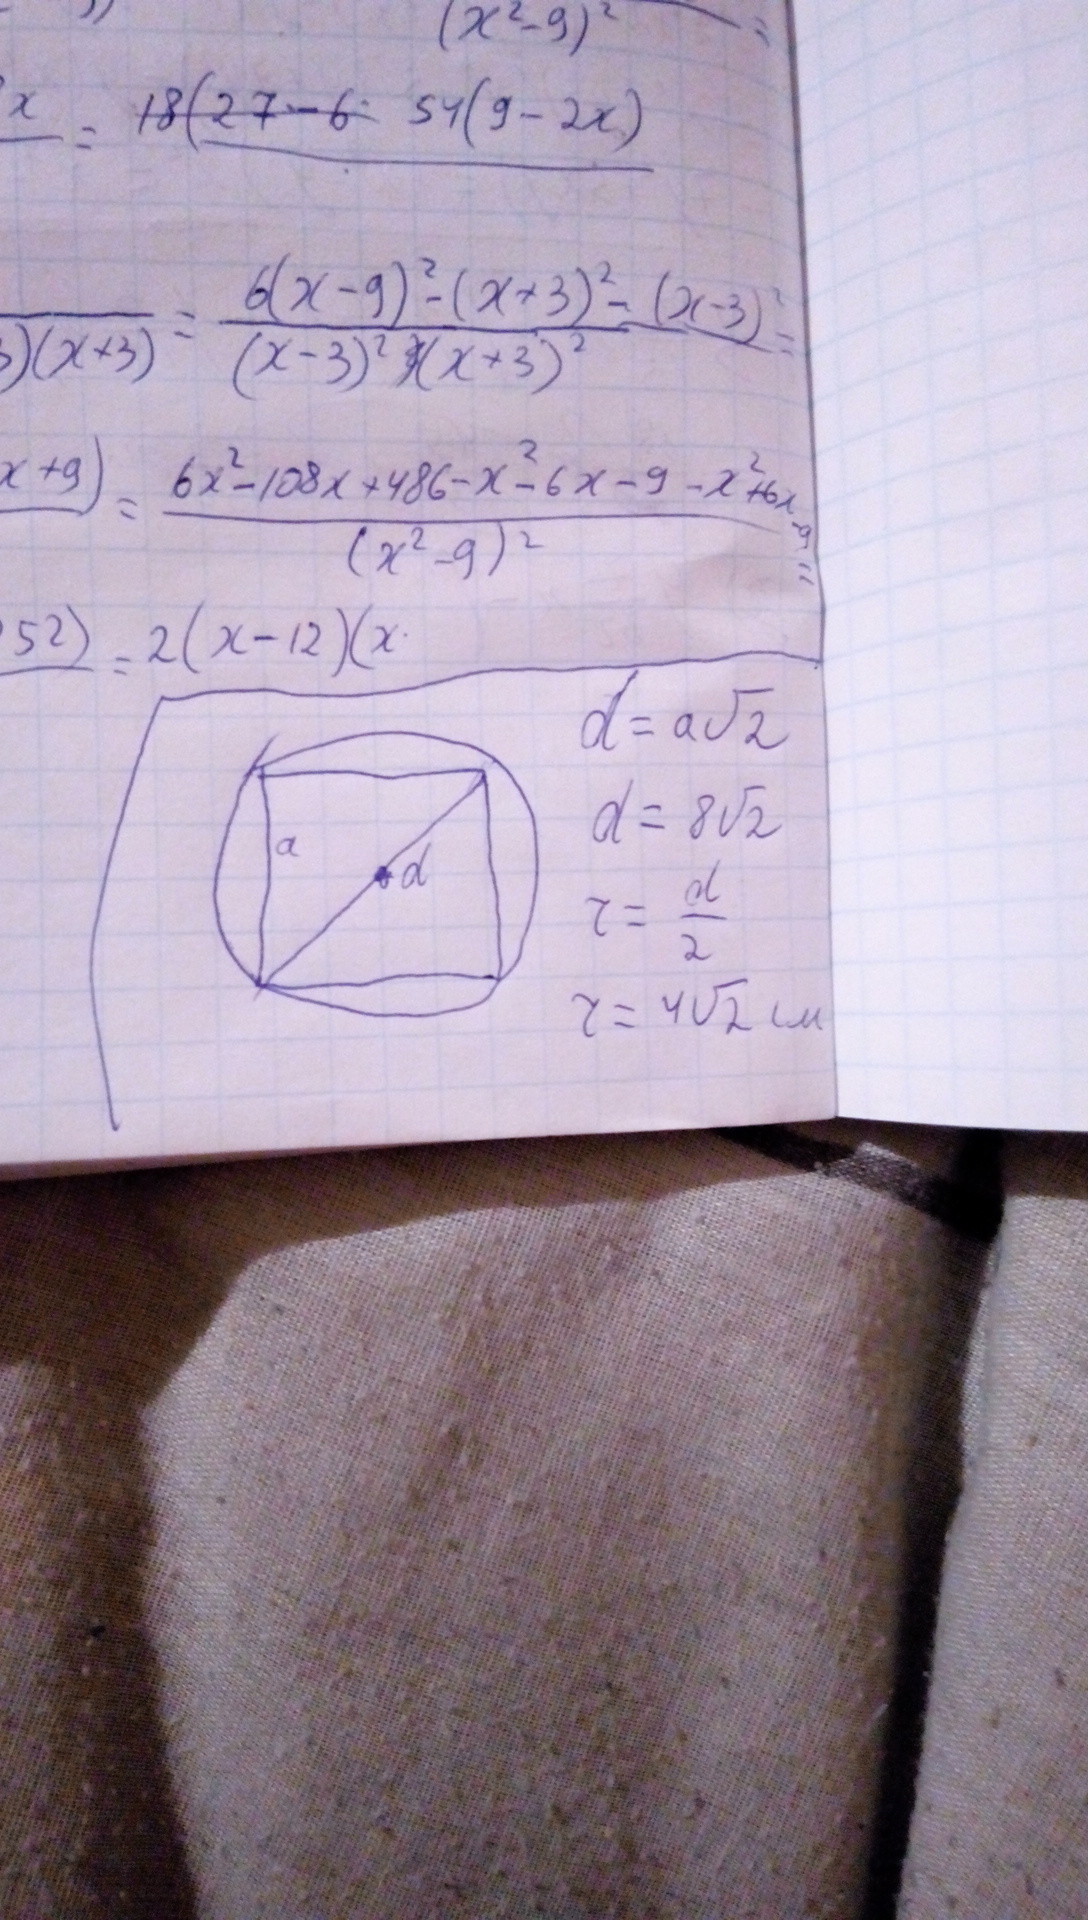 (x²-9)² =
x = 54(9-2x)
)(x+3) = 6(x-9)²-(x+3)²-(x-3)² =
(x-3)² (x+3)²
x+9) = 6x²-108x+486-x²-6x-9-x²+6x-9 =
(x²-9)²
52) = 2(x-12)(x
d = a√2
d = 8√2
a
d
r = d/2
r = 4√2 см